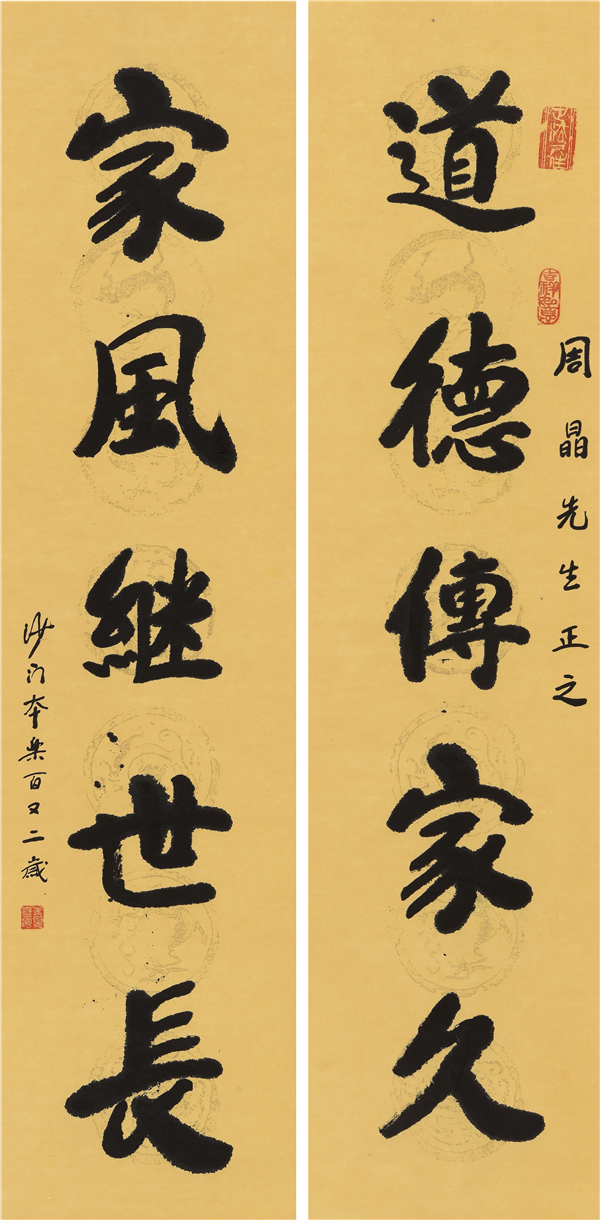 周晶先生正之
道德傳家久
家風継世長
沙门本樂百又二歲